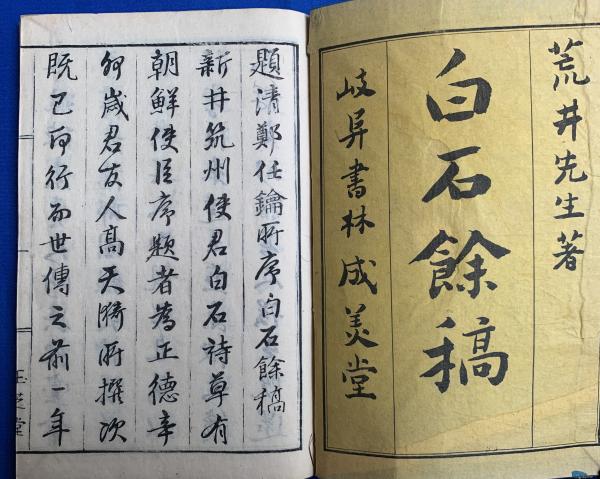 荒井先生著
白石餘稿
岐阜書林 成美堂
題清鄭任鑰所序白石餘稿
新井筑州使君白石詩草有
朝鮮使臣序題者為正德辛
卯歲君友人高天漪所撰次
既已印行而世傳之前一年
玉芝堂